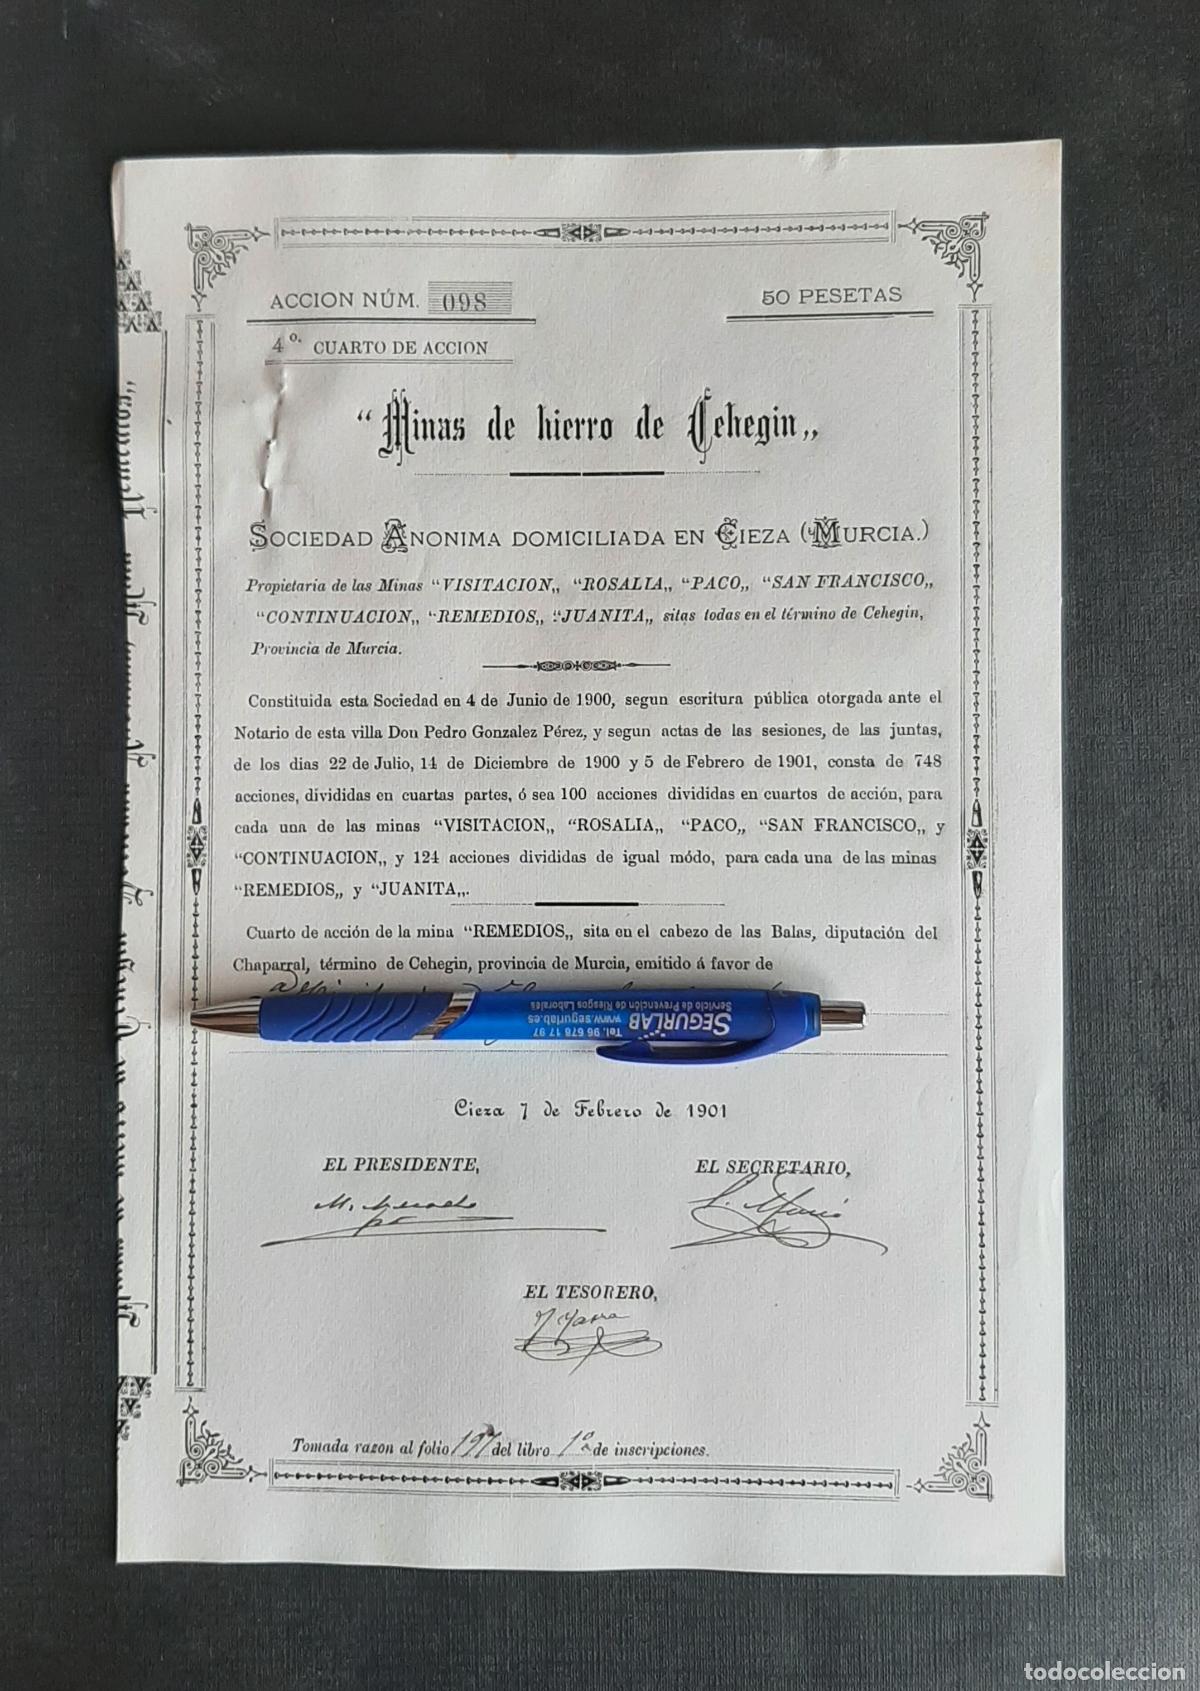 ACCION NÚM. 098
50 PESETAS
4º. CUARTO DE ACCION
“Minas de hierro de Cehegin„
SOCIEDAD ANONIMA DOMICILIADA EN CIEZA (MURCIA.)
Propietaria de las Minas “VISITACION„ “ROSALIA„ “PACO„ “SAN FRANCISCO„
“CONTINUACION„ “REMEDIOS„ “JUANITA„ sitas todas en el término de Cehegin,
Provincia de Murcia.
Constituida esta Sociedad en 4 de Junio de 1900, segun escritura pública otorgada ante el
Notario de esta villa Don Pedro Gonzalez Pérez, y segun actas de las sesiones, de las juntas,
de los dias 22 de Julio, 14 de Diciembre de 1900 y 5 de Febrero de 1901, consta de 748
acciones, divididas en cuartas partes, ó sea 100 acciones divididas en cuartos de acción, para
cada una de las minas “VISITACION„ “ROSALIA„ “PACO„ “SAN FRANCISCO„ y
“CONTINUACION„ y 124 acciones divididas de igual módo, para cada una de las minas
“REMEDIOS„ y “JUANITA„.
Cuarto de acción de la mina “REMEDIOS„ sita en el cabezo de las Balas, diputación del
Chaparral, término de Cehegin, provincia de Murcia, emitido á favor de
SEGURLAB
Servicio de Prevención de Riesgos Laborales
www.segurlab.es
Tel. 96 678 17 97
Cieza 7 de Febrero de 1901
EL PRESIDENTE,
EL SECRETARIO,
EL TESORERO,
Tomada razon al folio 197 del libro 1º de inscripciones.
todocoleccion